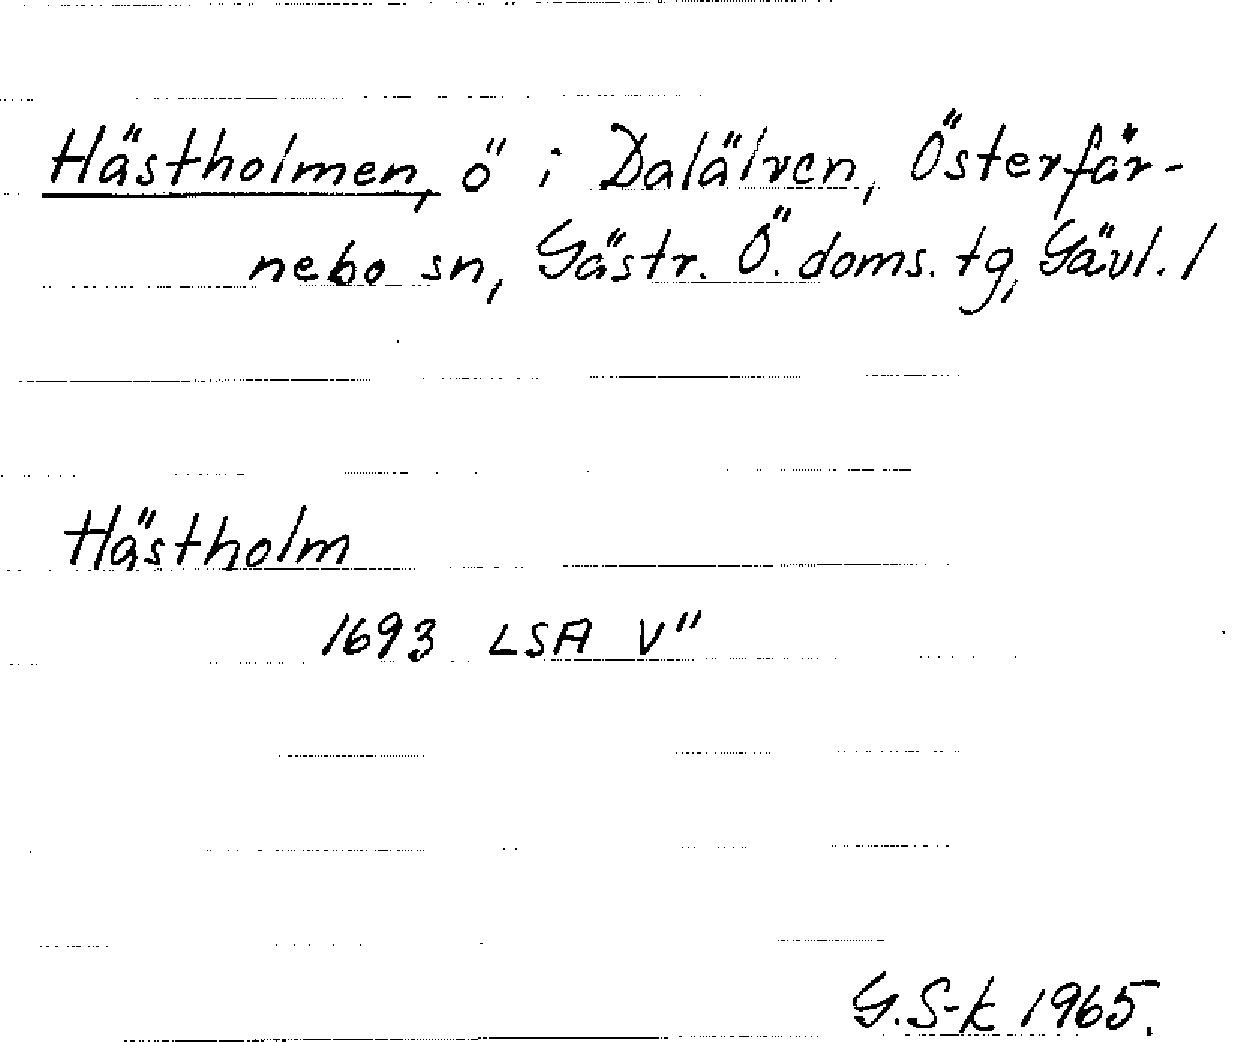 Hästholmen, ö i Dalälven, Österfär-
nebo sn, Gästr. Ö. doms. tg, Gävl. l
Hästholm
1693 LSA V"
G. S-k 1965.